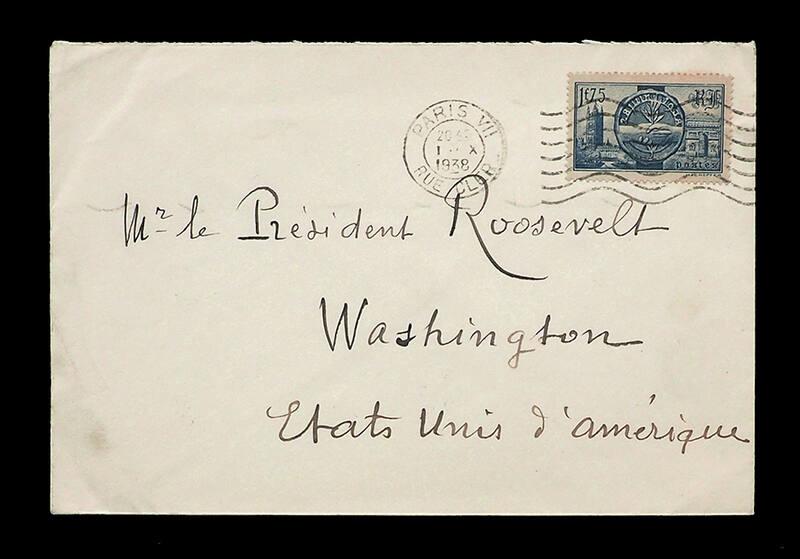 PARIS VII
1938
RUE CLER
1f75
RF
postes
Mr le Président Roosevelt
Washington
Etats Unis d'amérique